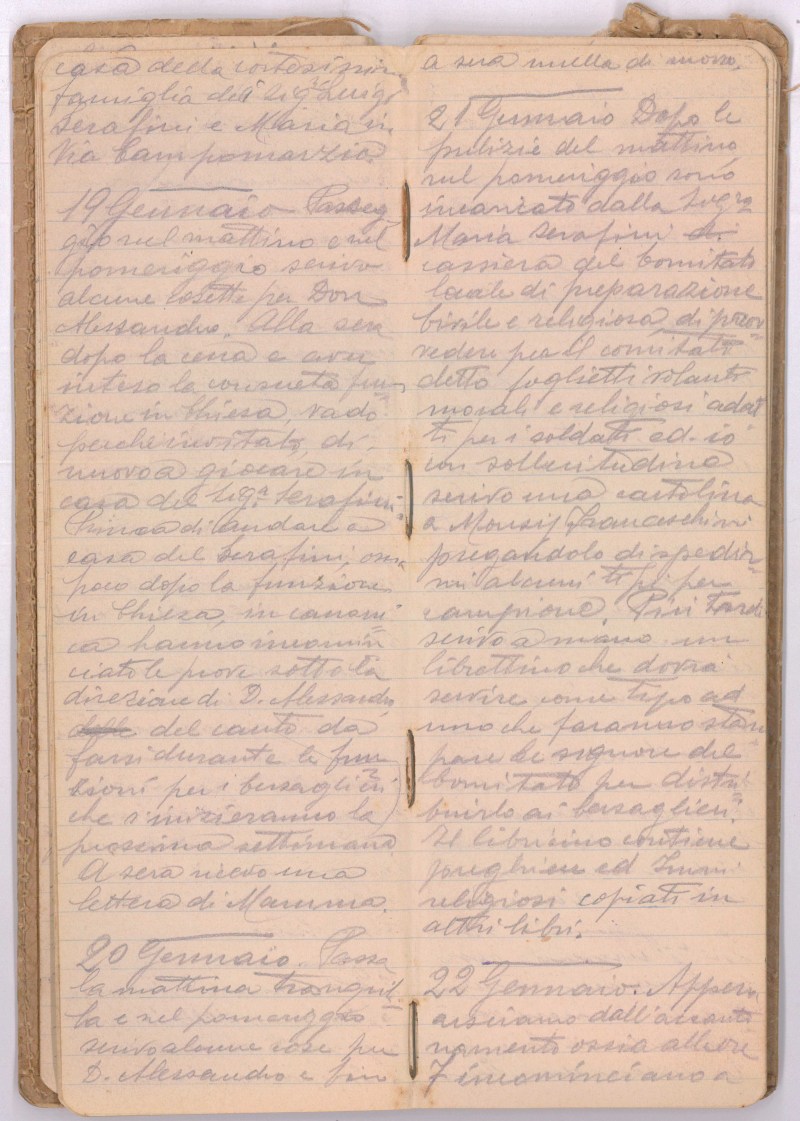 casa della cortesissima
famiglia del Sig. Luigi
Serafini e Maria in
Via Campomarzio.
19 Gennaio Passeg
gio nel mattino e nel
pomeriggio scrivo
alcune cosette per Don
Alessandro. Alla sera
dopo la cena e aver
inteso la consueta fun
zione in Chiesa, vado
perchè invitato, di
nuovo a giocare in
casa del Sig.r Serafini.
Prima di andare a
casa del Serafini, ossia
poco dopo la funzione
in Chiesa, in canoni
ca hanno incomin
ciato le prove sotto la
direzione di D. Alessandro
del canto da
farsi durante le fun
zioni per i bersaglieri
che s'inizieranno la
prossima settimana
A sera ricevo una
lettera di Mamma.
20 Gennaio. Passa
la mattina tranquil
la e nel pomeriggio
scrivo alcune cose per
D. Alessandro e fin
a sera nulla di nuovo.
21 Gennaio Dopo le
pulizie del mattino
nel pomeriggio sono
incaricato dalla Sig.ra
Maria Serafini
cassiera del Comitato
locale di preparazione
Civile e religiosa, di prov
vedere per il comitato
detto foglietti volanti
morali e religiosi adat
ti per i soldati ed io
con sollecitudine
scrivo una cartolina
a Monsig. Franceschini
pregandolo di spedir
mi alcuni tipi per
campione. Più tardi
scrivo a mano un
librettino che dovrà
servire come tipo ad
uno che faranno stam
pare le signore del
Comitato per distri
buirlo ai bersaglieri.
Il libricino contiene
preghiere ed Inni
religiosi copiati in
altri libri.
22 Gennaio. Appena
usciamo dall'accanto
namento ossia alle ore
7 incominciano a